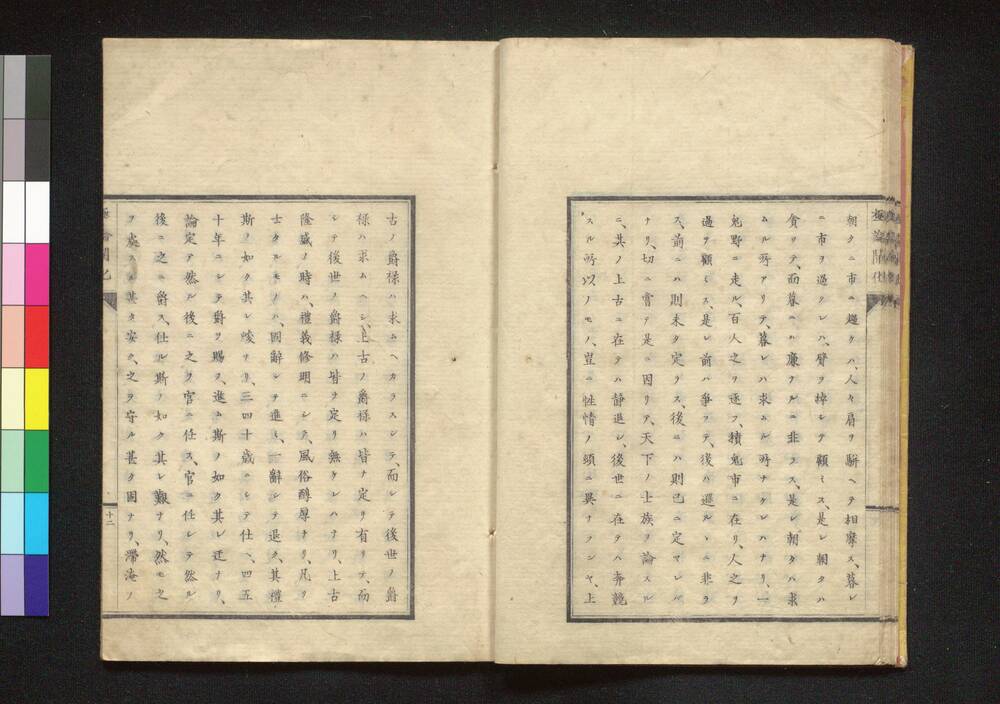 朝タニ市ニ趨クハ、人々肩ヲ駢ヘテ相摩ス、暮レ
ニ市ヲ過クレハ、臂ヲ掉レテ顧ミス、是レ朝タハ
貪リテ、而暮ニハ廉ナルニ非ラス、是レ朝タハ求
ムル所アリテ、暮レハ求ムル所ナケレハナリ、一
兎野ニ走ル、百人之ヲ逐フ、積兎市ニ在リ、人之ヲ
過ヲ顧ミス、是レ前ハ争フテ、後ハ遜ルヽニ非ラ
ス、前ニハ則未タ定ラス、後ニハ則已ニ定マレバ
ナリ、切ニ嘗テ是ニ因リテ、天下ノ士族ヲ論スル
ニ、其ノ上古ニ在テハ静退シ、後世ニ在テハ奔競
スル所以ノモノ、豈ニ性情ノ頭ニ異ナランヤ、上
古ノ爵禄ハ求ムヘカラスシテ、而シテ後世ノ爵
禄ハ求ムヘシ、上古ノ爵禄ハ皆ナ定リ有リテ、而
シテ後世ノ爵禄ハ皆ヲ定リ無ケレハナリ、上古
隆盛ノ時ハ、禮義修明ニシテ、風俗醇厚ナリ、凡ソ
士タルモノハ、固辭シテ進ミ、一辭シテ退ク、其禮
斯ノ如ク其レ峻ナリ、三四十歳ニシテ仕ヘ、四五
十年ニシテ爵ヲ賜フ、進ム斯ノ如ク其レ迂ナリ、
論定テ然ル後ニ之ヲ官ニ任ス、官ニ任シテ然ル
後ニ之ニ爵ス、仕ル斯ノ如ク其レ艱ナリ、然モ之
ヲ處スル甚タ安ク、之ヲ守ル甚タ固ナリ、滞淹ノ
十二